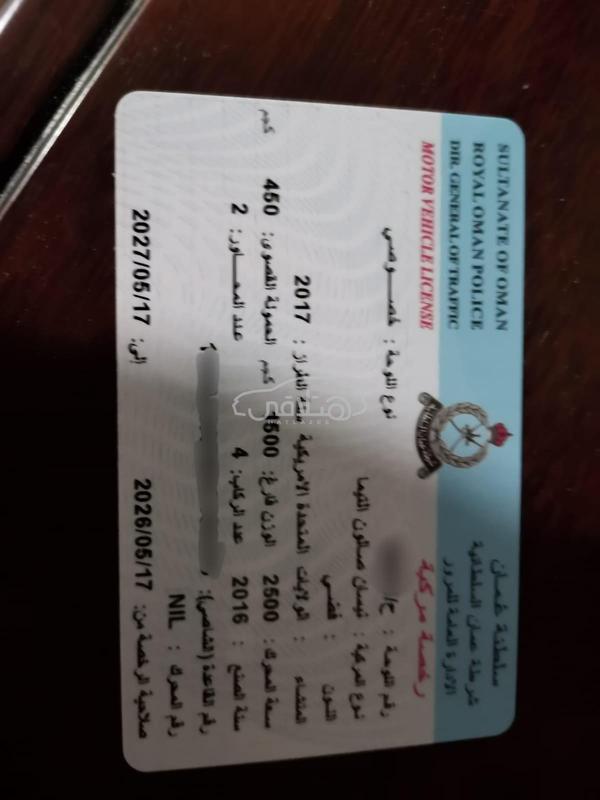 SULTANATE OF OMAN
ROYAL OMAN POLICE
DIR. GENERAL OF TRAFFIC
MOTOR VEHICLE LICENSE
سلطنة عمان
شرطة عمان السلطانية
الادارة العامة للمرور
رخصة مركبة
رقم اللوحة : /ح نوع اللوحة : خصوصي
نوع المركبة : نيسان صالون التيما
اللون : فضي
المنشاء : الولايات المتحدة الامريكية سنة الطراز : 2017
سعة المحرك: 2500 الوزن فارغ: 1500 كجم الحمولة القصوى: 450 كجم
سنة الصنع : 2016 عدد الركاب: 4 عدد المحاور: 2
رقم القاعدة (الشاصي):
رقم المحرك : NIL
صلاحية الرخصة من: 2026/05/17 إلى: 2027/05/17
هتلاقي
HATLA2EE